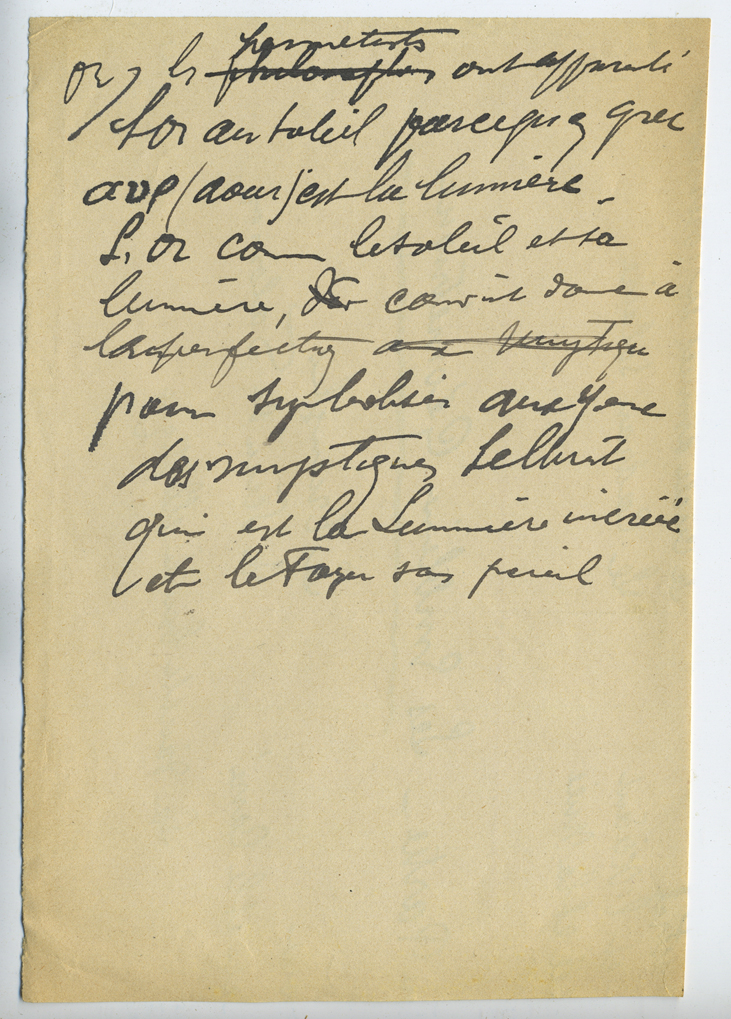 Or, les hermétistes philosophes ont apparenté
l'or au soleil parce qu'en grec
αυρ (aour) est la lumière.
L'or comme le soleil et sa
lumière, convient donc à
la perfection aux mystiques
pour symboliser aux yeux
des mystiques le Christ
qui est la Lumière incréée
et le Foyer sans pareil